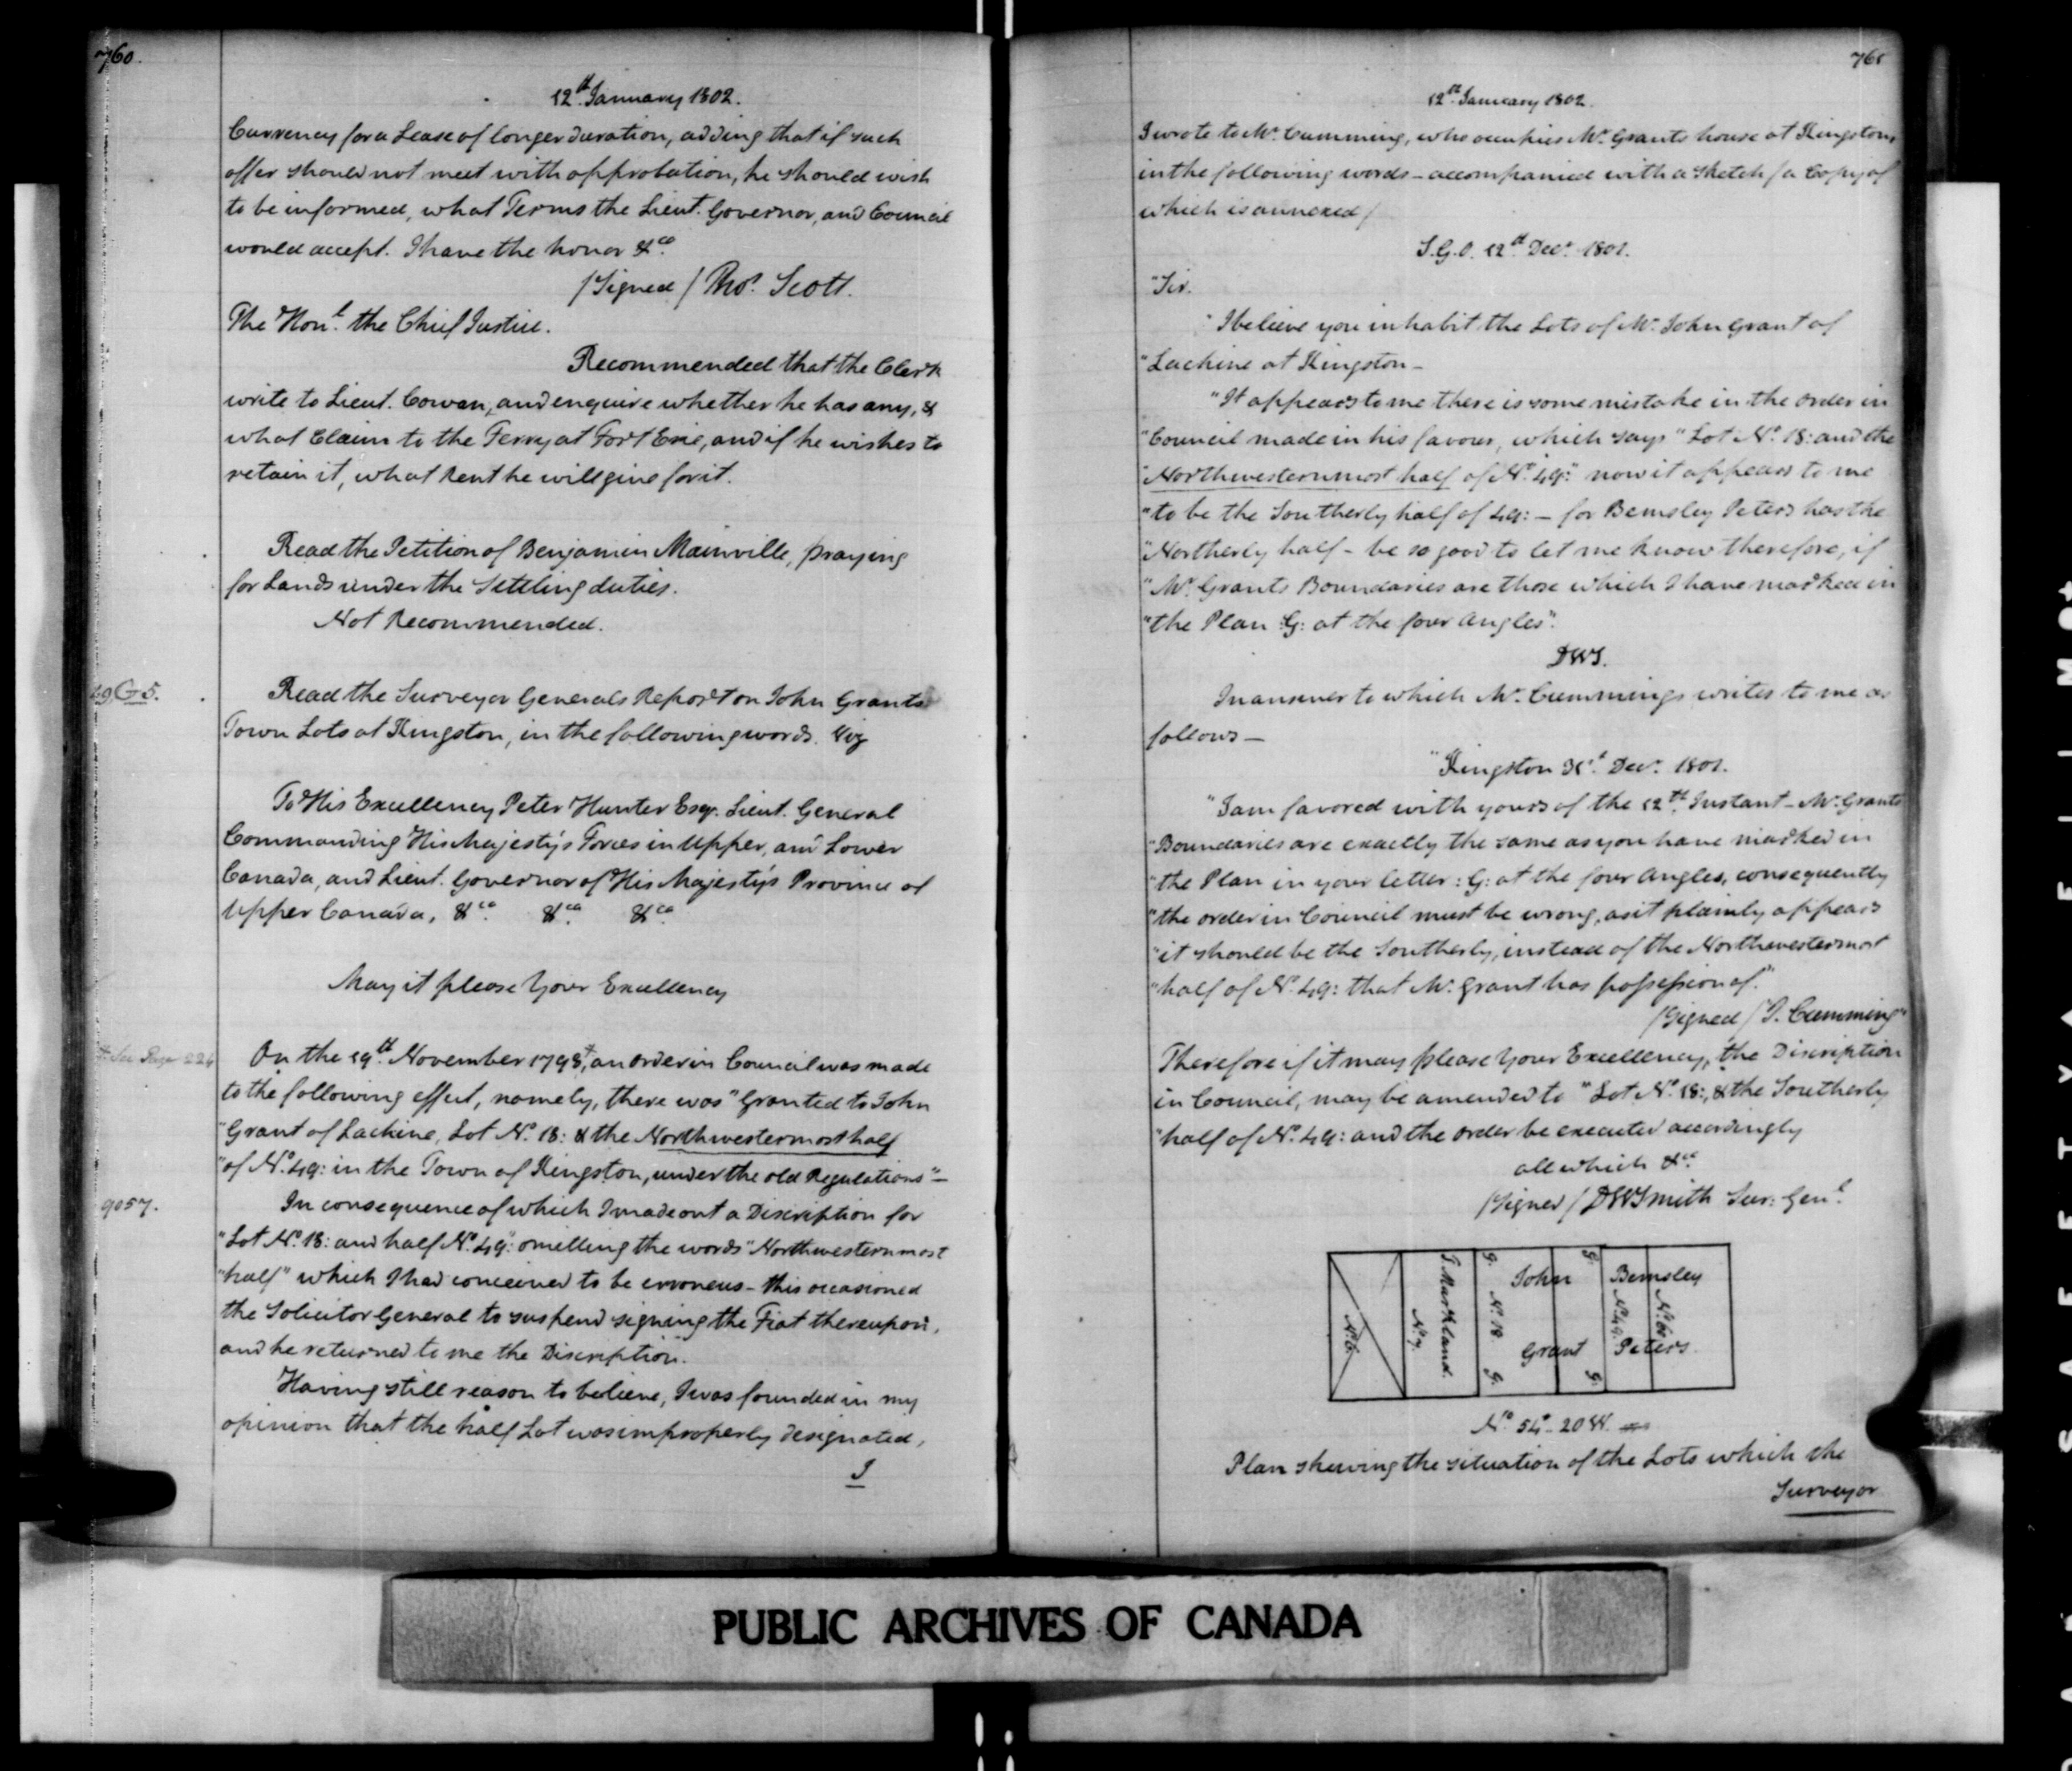 760.
12th January 1802.
Currency for a Lease of longer duration, adding that if such
offer should not meet with approbation, he should wish
to be informed, what Terms the Lieut. Governor, and Council
would accept. I have the honor &ca.
/Signed/ Thos. Scott.
The Honl. the Chief Justice.
Recommended that the Clerk
write to Lieut. Cowan, and enquire whether he has any, &
what Claim to the Ferry at Fort Erie, and if he wishes to
retain it, what Rent he will give for it.
Read the Petition of Benjamin Mainville, praying
for Lands under the Settling duties.
Not Recommended.
G 5.
Read the Surveyor Generals Report on John Grants
Town Lots at Kingston, in the following words. Viz
To His Excellency Peter Hunter Esqr. Lieut. General
Commanding His Majesty's Forces in Upper, and Lower
Canada, and Lieut. Governor of His Majesty's Province of
Upper Canada, &ca. &ca. &ca.
May it please Your Excellency
+ See Page 224
On the 19th November 1798+, an order in Council was made
to the following effect, namely, there was "Granted to John
"Grant of Lachine, Lot No. 18: & the Northwesternmost half
"of No. 49: in the Town of Kingston, under the old Regulations"—
9057.
In consequence of which I made out a Discription for
"Lot No. 18: and half No. 49": omitting the words "Northwesternmost
"half" which I had conceived to be erroneus - this occasioned
the Solicitor General to suspend signing the Fiat thereupon,
and he returned to me the Discription.
Having still reason to believe, I was founded in my
opinion that the half Lot was improperly designated,
I
761
12th January 1802.
I wrote to Mr. Cumming, who occupies Mr. Grants house at Kingston,
in the following words - accompanied with a Sketch /a Copy of
which is annexed/
S.G.O. 12th Decr. 1801.
"Sir.
"I believe you inhabit the Lots of Mr. John Grant of
"Lachine at Kingston -
"It appears to me there is some mistake in the order in
"Council made in his favour, which says "Lot No. 18: and the
"Northwesternmost half of No. 49:" now it appears to me
"to be the Southerly half of 49: - for Bemsley Peters has the
"Northerly half - be so good to let me know therefore, if
"Mr. Grants Boundaries are those which I have marked in
"the Plan :G: at the four Angles".
DWS.
In answer to which Mr. Cummings writes to me as
follows —
"Kingston 31st Decr. 1801.
"I am favored with yours of the 12th Instant - Mr. Grants
"Boundaries are exactly the same as you have marked in
"the Plan in your letter :G: at the four Angles, consequently
"the order in Council must be wrong, as it plainly appears
"it should be the Southerly, instead of the Northwestermost
"half of No. 49: that Mr. Grant has possession of."
/Signed/ Cumming"
Therefore if it may please Your Excellency, the Discription
in Council, may be amended to "Lot No. 18:, & the Southerly
"half of No. 49: and the order be executed accordingly
all which &ca.
/Signed/ DWSmith Sur: Genl.
No. 6
No. 7
Markland.
G. No. 18 G.
John
Grant
G. G.
Bemsley
Peters.
No. 49.
No. 60
Plan shewing the situation of the Lots which the
Surveyor
PUBLIC ARCHIVES OF CANADA